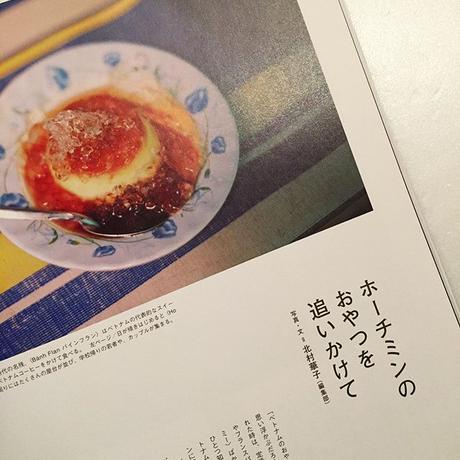 ホーチミンの
おやつを
追いかけて
写真・文＝北村華子（編集部）
時代の名残、〈Bánh Flan バインフラン〉はベトナムの代表的なスイー
ベトナムコーヒーをかけて食べる。 左ページ／日が傾きはじめると〈Ho
りにはたくさんの屋台が並び、学校帰りの若者や、カップルが集まる。
「ベトナムのおや
思い浮かぶだろ
れた時は、定
やフランスパ
ミー）ばか
ひとつ知
トナム
ンに